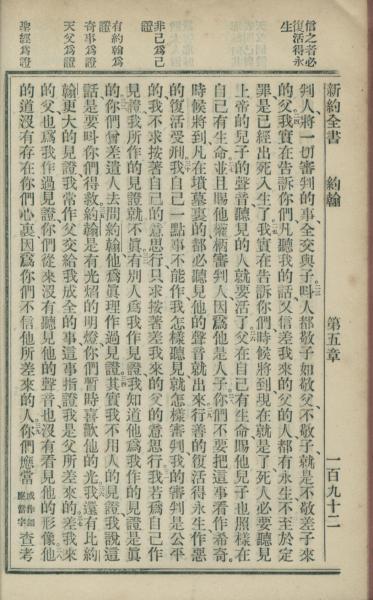 信之者必
復活得永
生
非己爲己
證
有約翰爲
證
奇事爲證
天父爲證
聖經爲證
新約全書 約翰 第五章 一百九十二
判人將一切審判的事全交與子叫人都敬子如敬父不敬子就是不敬差子來
的父我實在告訴你們凡聽我的話又信差我來的父的人都有永生不至於定
罪是已經出死入生了我實在告訴你們時候將到現在就是了死人必要聽見
上帝的兒子的聲音聽見的人就要活了父在自己有生命賜他兒子也照樣在
自己有生命並且賜他權柄審判人因爲他是人子你們不要把這事看作希奇
時候將到凡在墳墓裏的都必聽見他的聲音就出來行善的復活得永生作惡
的復活受刑我自己一點事不能作我怎樣聽見就怎樣審判我的審判是公平
的我不求按著自己的意思行只求按著差我來的父的意思行我若爲自己作
見證我所作的見證就不眞有別人爲我作見證我知道他爲我作的見證是眞
的你們曾差遣人去問約翰他爲眞理作過見證其實我不用人的見證我說這
話是要叫你們得救約翰是有光焰的明燈你們暫時喜歡他的光我還有比約
翰更大的見證我常作父交給我成全的事這事指證我是父所差來的差我來
的父也爲我作過見證你們從來沒有聽見他的聲音也沒有看見他的形像他
的道沒有存在你們心裏因爲你們不信他所差來的人你們應當或作細應當字查考